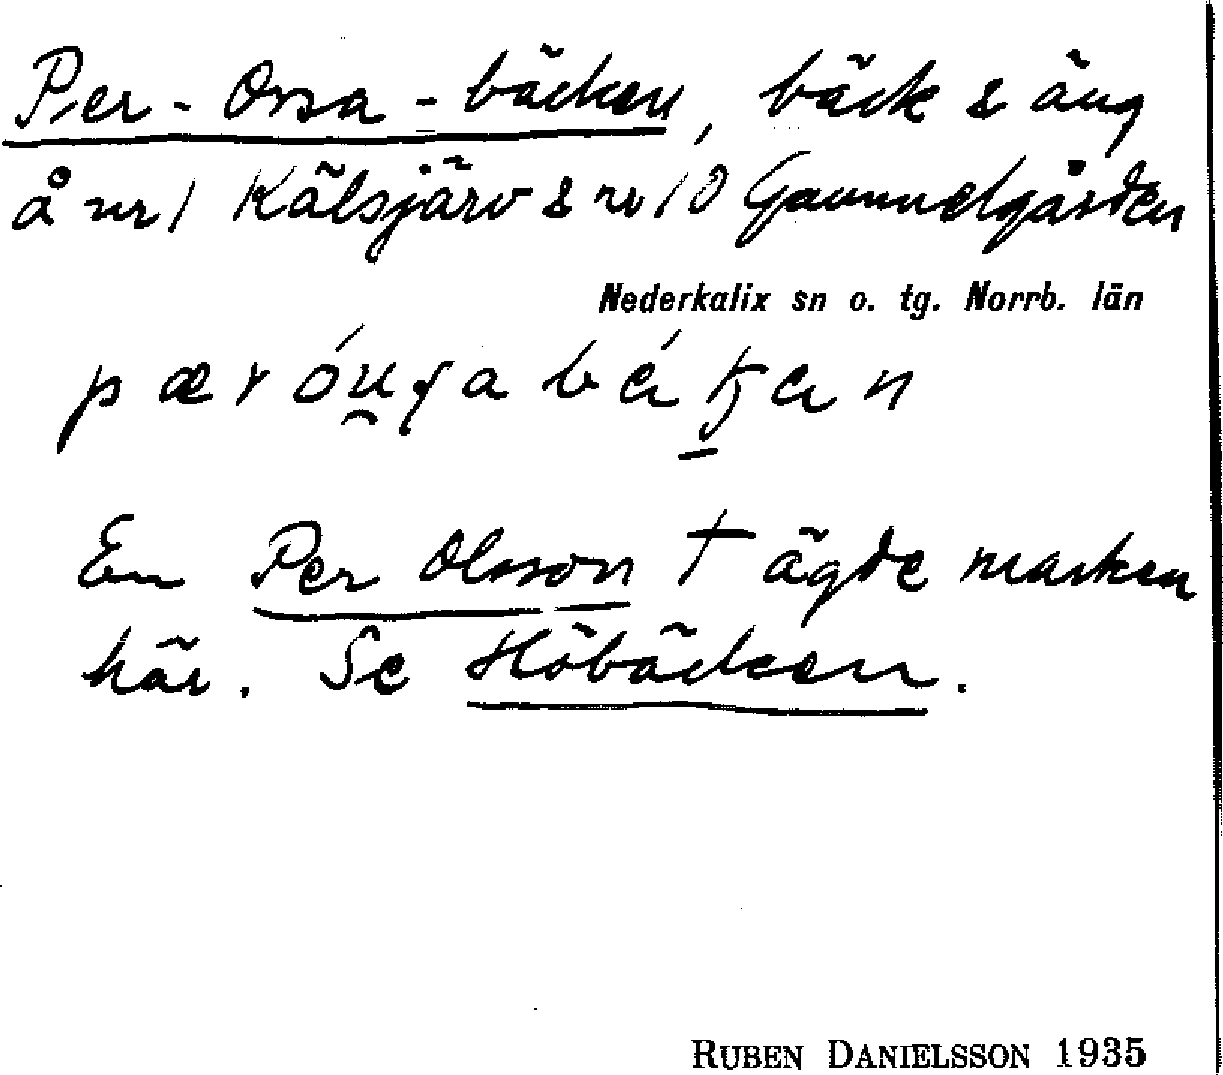 Per-Orsa-bäcken, bäck & äng
å nr 1 Kälsjärv & nr 10 Gammelgården
Nederkalix sn o. tg. Norrb. län
En Per Olsson † ägde marken
här. Se Höbäcken.
RUBEN DANIELSSON 1935